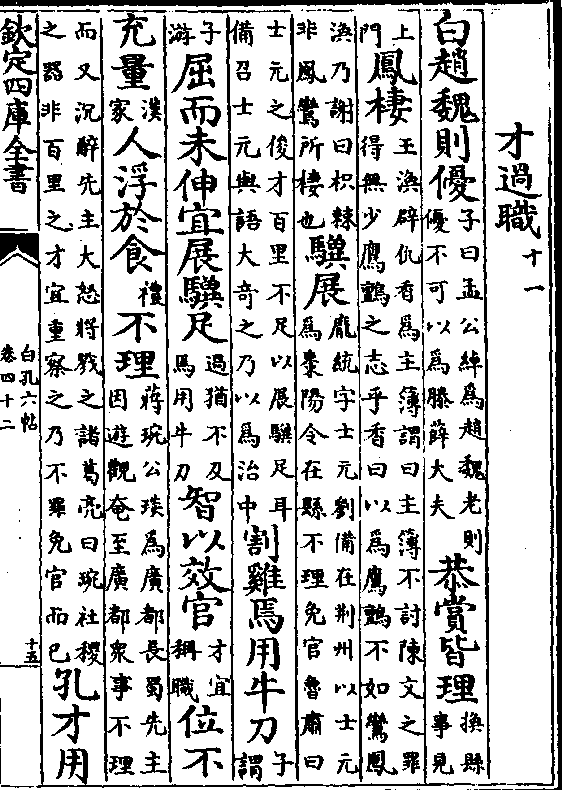 才過職十一
白趙魏則優子曰孟公綽為趙魏老則優不可以為滕薛大夫恭賞皆理換縣事見
上門鳳棲王渙辟仇香為主簿謂曰主簿不討陳文之罪得無少鷹鸇之志乎香曰以為鷹鸇不如鸞鳳
渙乃謝曰枳棘非鳳鸞所棲也驥展龐統字士元劉備在荆州以士元為耒陽令在縣不理免官魯肅曰
士元之俊才百里不足以展驥足耳備召士元與語大奇之乃以為治中割雞焉用牛刀子謂
子游屈而未伸宜展驥足過猶不及馬用牛刀智以效官才宜稱職位不
充量漢家人浮於食禮不理蔣琬公琰為廣都長蜀先主因遊觀奄至廣都衆事不理
而又沉醉先主大怒將戮之諸葛亮曰琬社稷之器非百里之才宜重察之乃不罪免官而已孔才用
欽定四庫全書
白孔六帖
卷四十二
十五